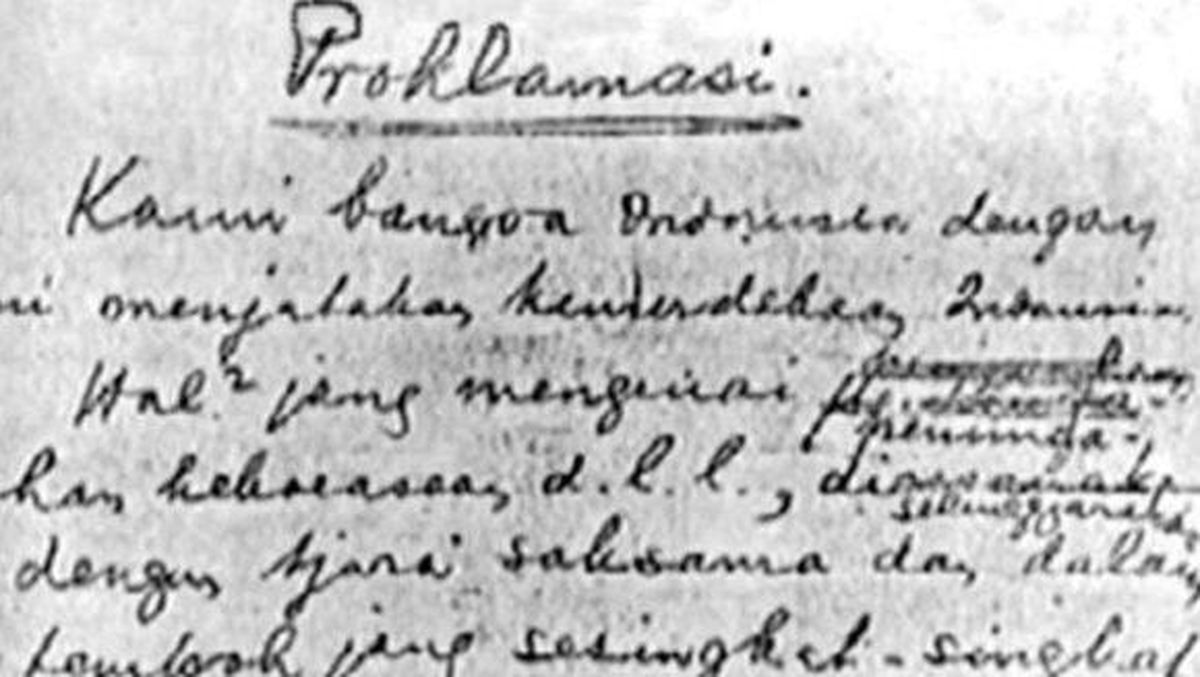 Proklamasi.
Kami bangsa Indonesia dengan
ni menjatakan kemerdekaan Indonesia.
Hal² jang mengenai
peminda-
han kekoeasaan d.l.l.,
diselenggarakan
dengan tjara saksama dan dalam
tempoh jang sesingkat-singkat